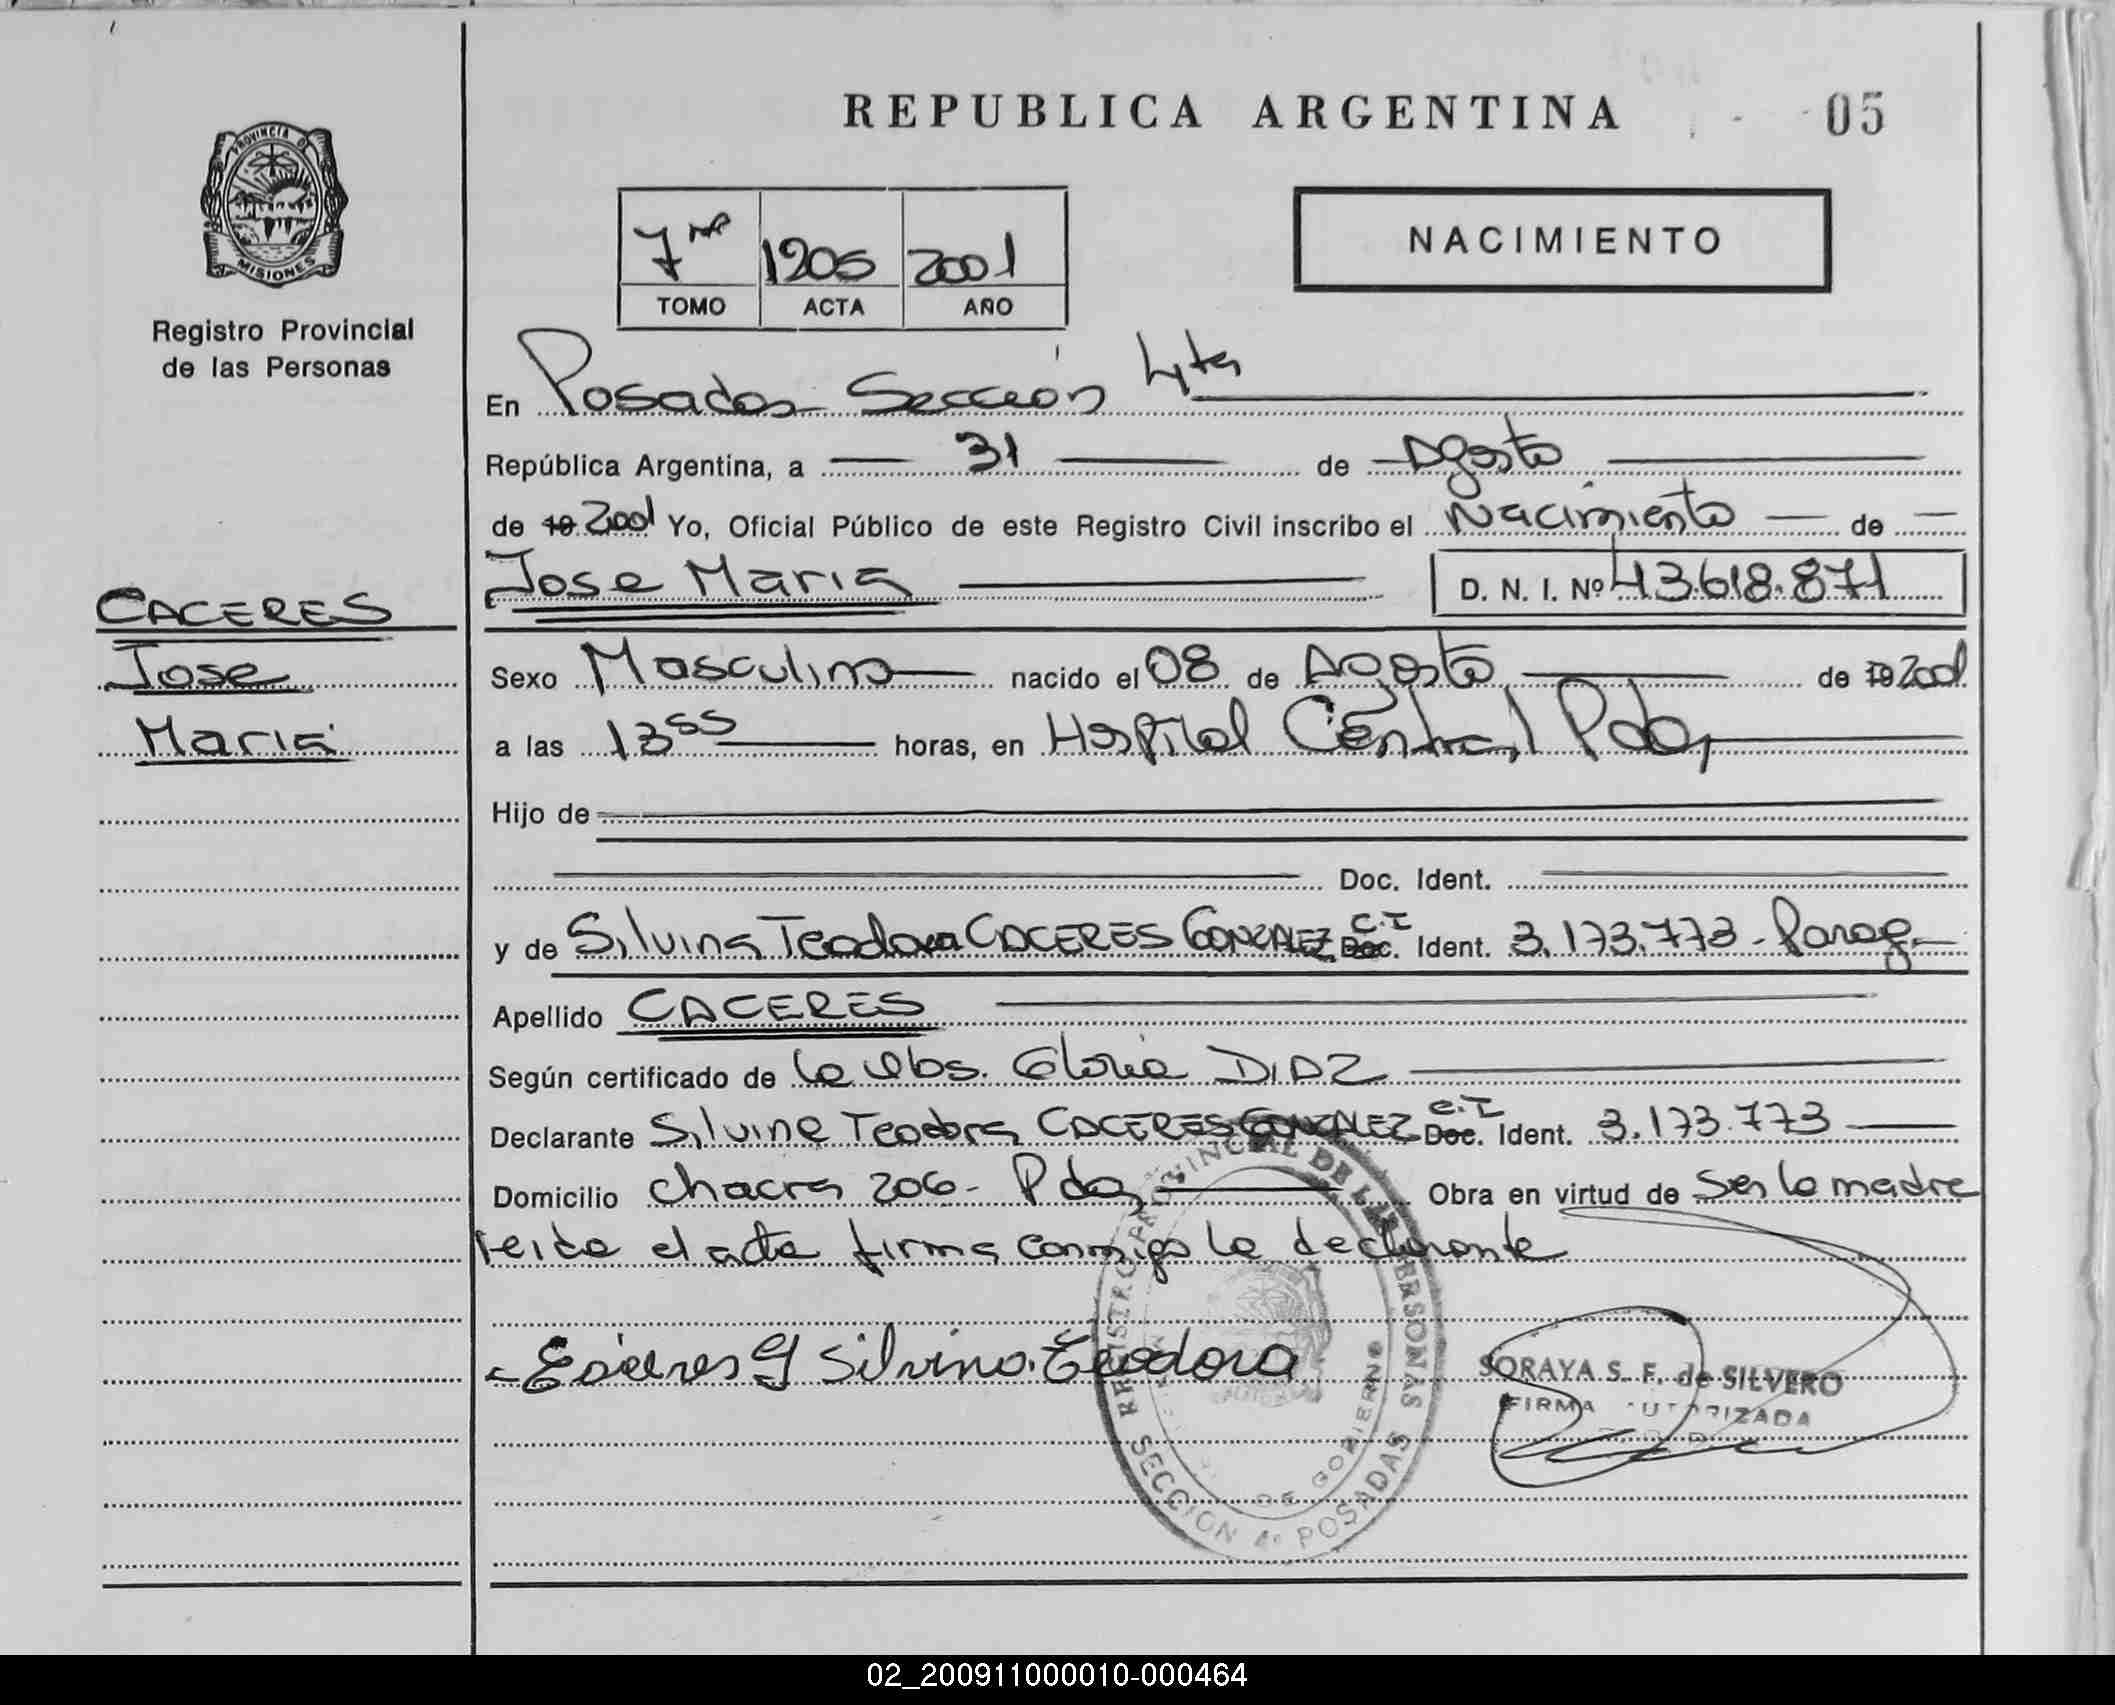 REPUBLICA ARGENTINA
05
PROVINCIA DE
MISIONES
Registro Provincial
de las Personas
7mo 1205 2001
TOMO ACTA AÑO
NACIMIENTO
En Posadas Sección 4ta
República Argentina, a 31 de Agosto
de 19 2001 Yo, Oficial Público de este Registro Civil inscribo el Nacimiento de
Jose Maria D. N. I. Nº 43.618.871
CACERES
Jose
Maria
Sexo Masculino nacido el 08 de Agosto de 19 2001
a las 13 55 horas, en Hospital Central Pdas
Hijo de
Doc. Ident.
y de Silvina Teodora CACERES GONZALEZ C.I Doc. Ident. 3.173.773 - Parag.
Apellido CACERES
Según certificado de la Obs. Gloria DIAZ
Declarante Silvina Teodora CACERES GONZALEZ C.I Doc. Ident. 3.173.773
Domicilio chacra 206 - Pdas Obra en virtud de ser la madre
leida el acta firma conmigo la declarante
Silvina Teodora
REGISTRO PROVINCIAL DE LAS PERSONAS
SECCION 4º POSADAS
DE GOBIERNO
SORAYA S. F. de SILVERO
FIRMA AUTORIZADA
02_200911000010-000464